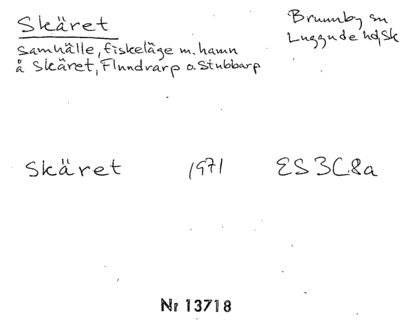 Skäret
Brunnby sn
Luggude hd, Sk
Samhälle, fiskeläge m. hamn
å Skäret, Flundrarp o. Stubbarp
Skäret 1971 ES 3C8a
Nr 13718